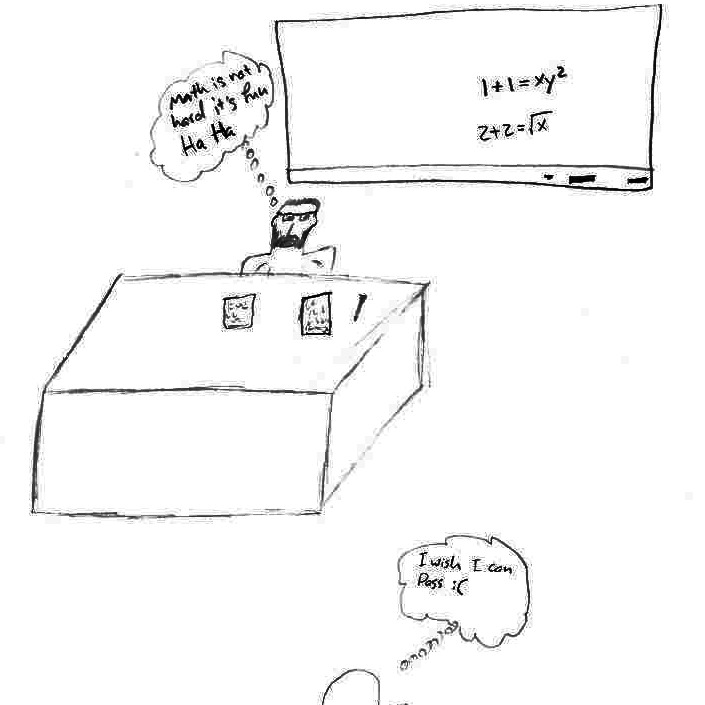 Math is not
hard it's fun
Ha Ha
1+1=xy²
2+2=√x
I wish I can
Pass :(